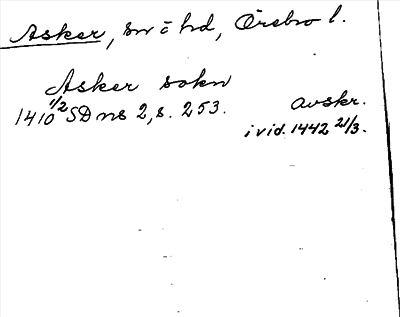 Asker, sn o hd, Örebro l.
Asker sokn
1410 1/2 SD ns 2, s. 253.
avskr.
i vid. 1442 21/3.